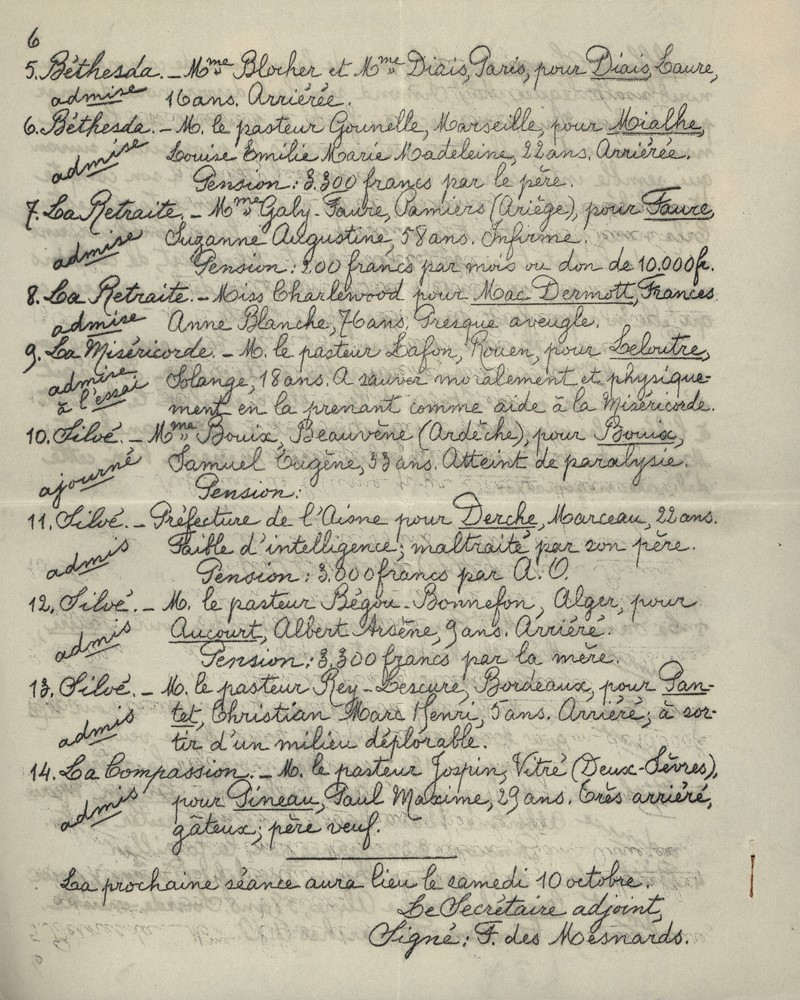 6
5. Béthesda. _ Mme Blocher et Mme Diais, Paris, pour Diais, Laure,
admise 16 ans. Arriérée.
6. Béthesda. - M. le pasteur Gounelle, Marseille, pour Mialhe,
admise Louise Emilie Marie Madeleine, 22 ans. Arriérée.
Pension : 3.300 francs par le père.
7. La Retraite. - Mme Galy-Faure, Pamiers (Ariège), pour Faure,
admise Suzanne Augustine, 58 ans. Infirme.
Pension : 200 francs par mois ou don de 10.000 fr.
8. La Retraite. - Miss Charlewood pour Mac Dermott, Frances
admise Anne Blanche, 76 ans. Presque aveugle.
9. La Miséricorde. - M. le pasteur Lafon, Rouen, pour Leloutre,
admise à l'essai Solange, 18 ans. A sauver moralement et physique-
ment en la prenant comme aide à la Miséricorde.
10. Siloé. - Mme Bouix, Beauvène (Ardèche), pour Bouix,
ajourné Samuel Eugène, 33 ans. Atteint de paralysie.
Pension :
11. Siloé. - Préfecture de l'Aisne pour Derche, Marceau, 22 ans.
admis Faible d'intelligence ; maltraité par son père.
Pension : 3.800 francs par A. O.
12. Siloé. - M. le pasteur Bégou-Bonnefon, Alger, pour
admis Aucourt, Albert Arsène, 9 ans. Arriéré.
Pension : 3.300 francs par la mère.
13. Siloé. - M. le pasteur Rey-Lescure, Bordeaux, pour Pan-
admis tet, Christian Marc Henri, 5 ans. Arriéré ; à sor-
tir d'un milieu déplorable.
14. La Compassion. - M. le pasteur Jospin, Vitré (Deux-Sèvres),
admis pour Pineau, Paul Maxime, 29 ans. Très arriéré,
gâteux ; père veuf.
La prochaine séance aura lieu le samedi 10 octobre.
Le Secrétaire adjoint,
Signé : F. des Mesnards.